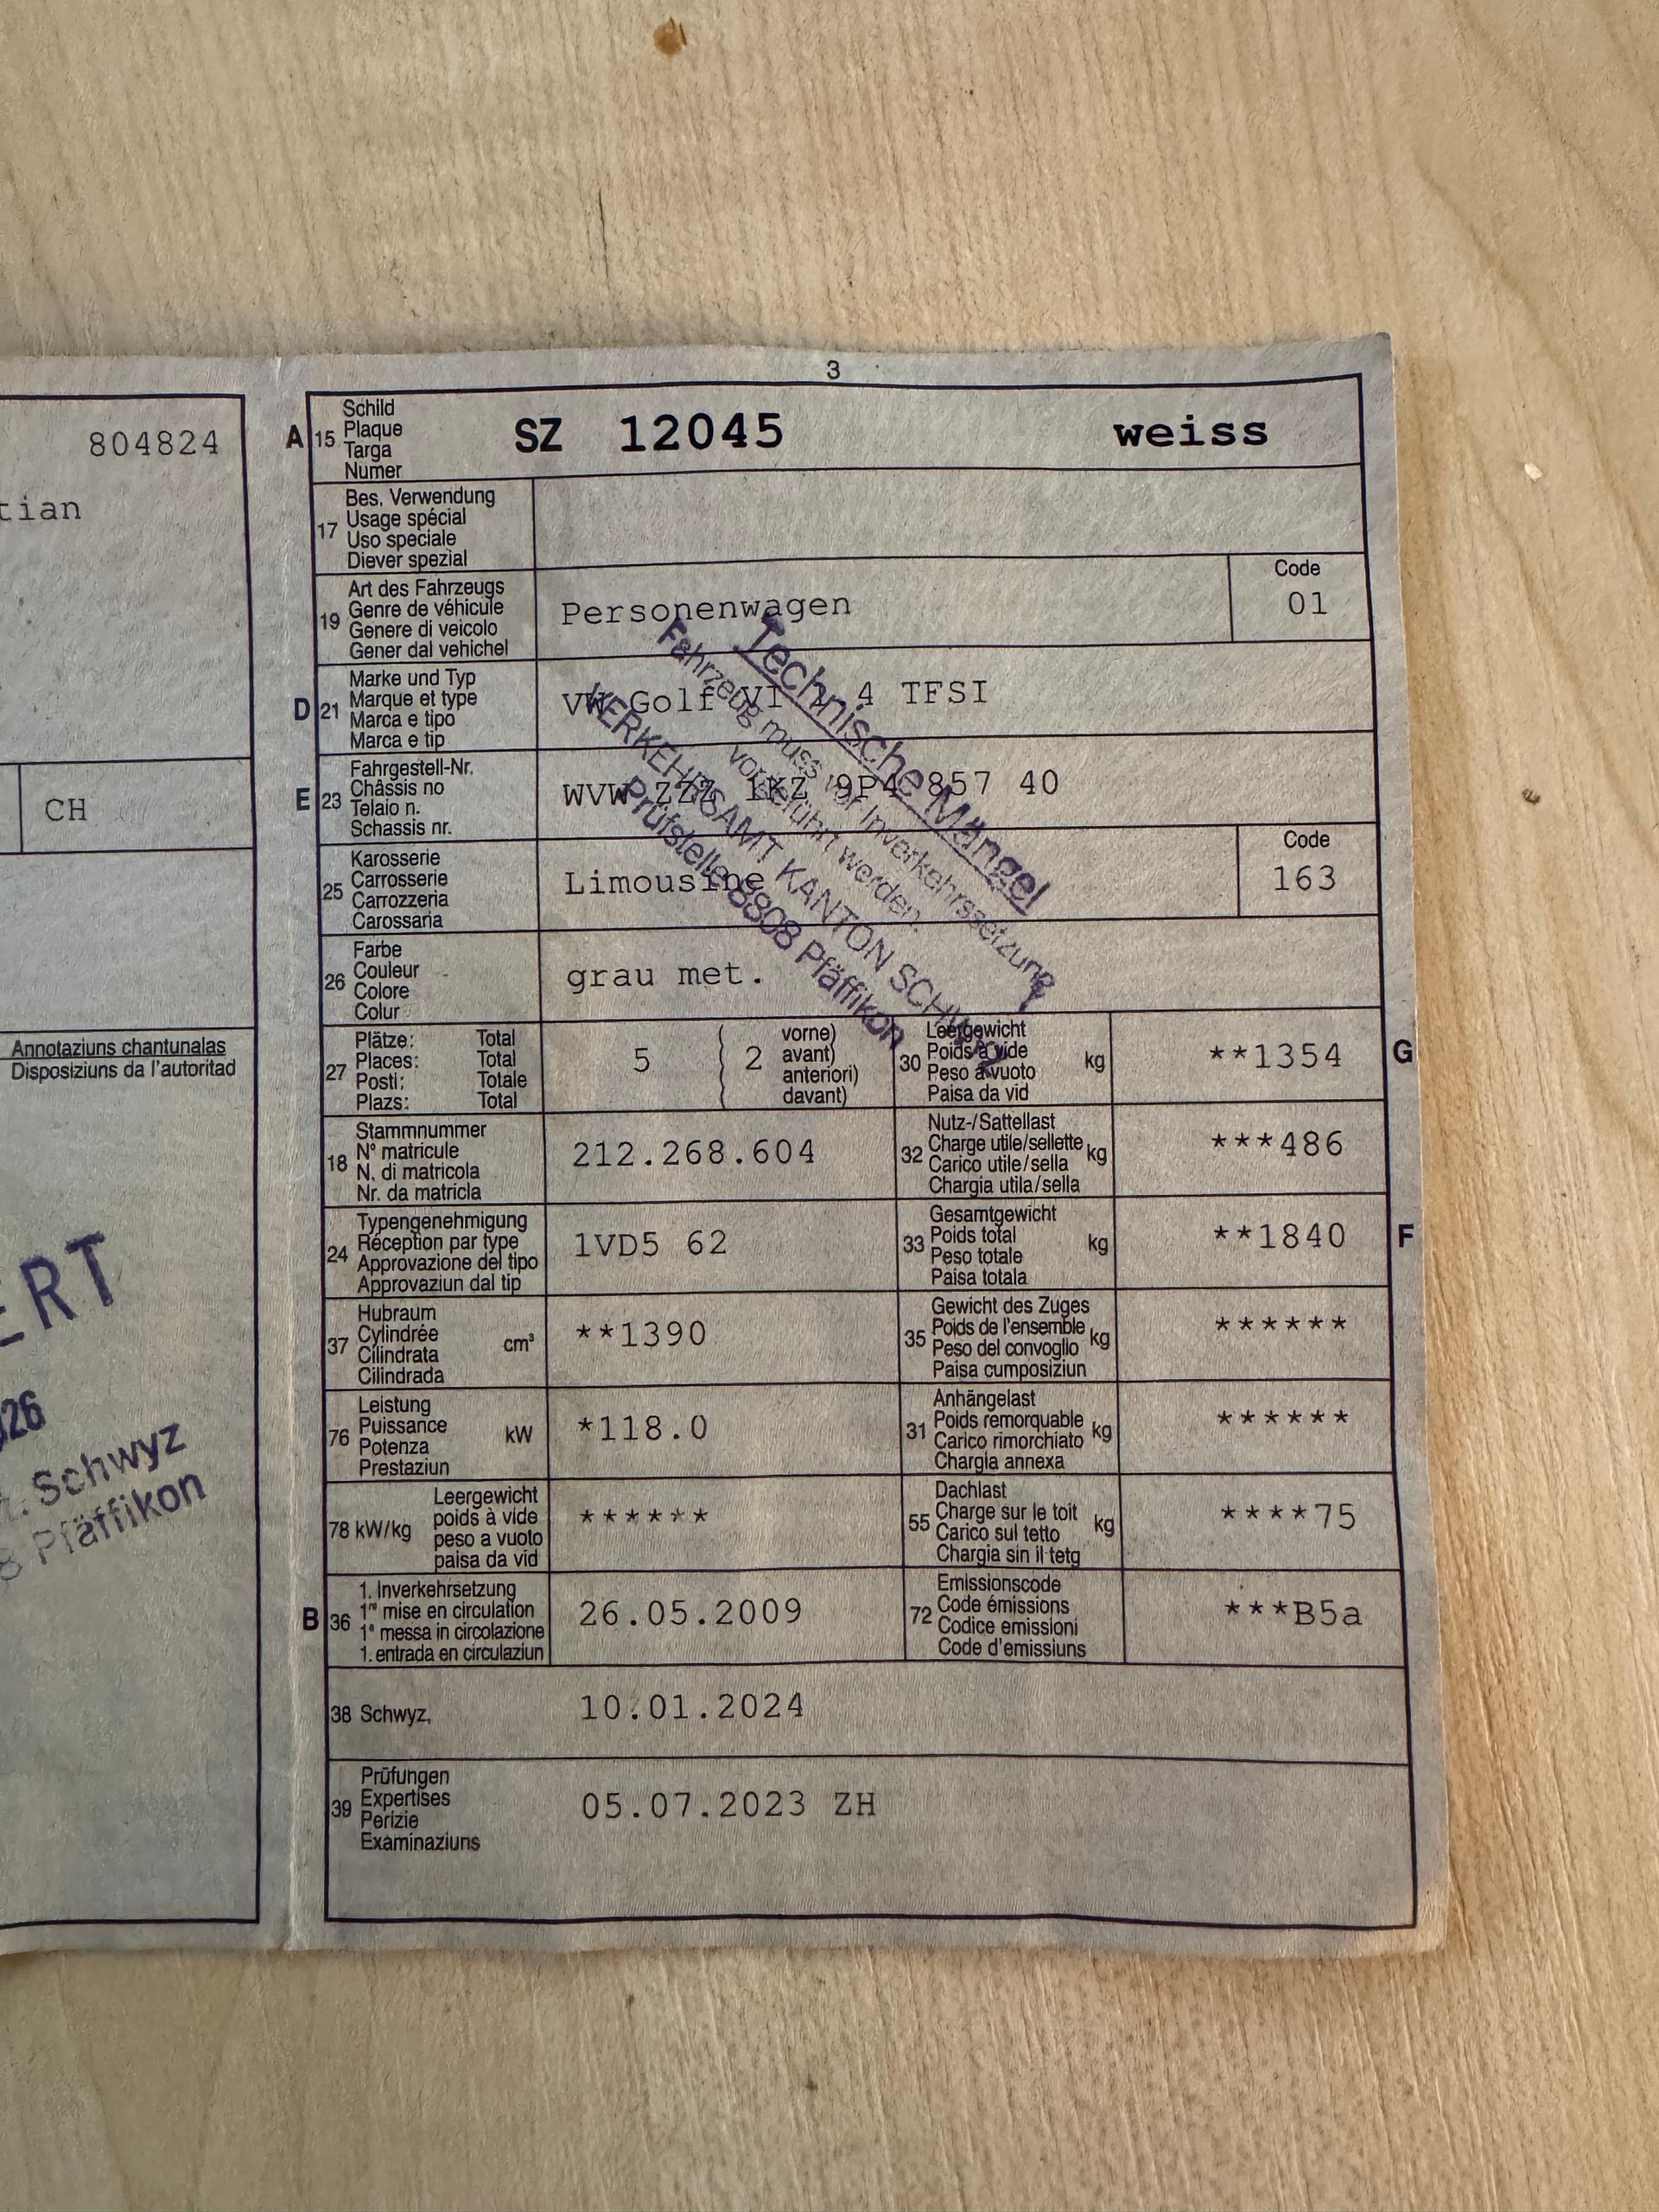 804824
tian
CH
Annotaziuns chantunalas
Disposiziuns da l'autoritad
ERT
26
Schwyz
8 Pfäffikon
3
A 15 Schild
Plaque
Targa
Numer
SZ 12045 weiss
17 Bes. Verwendung
Usage spécial
Uso speciale
Diever spezial
19 Art des Fahrzeugs
Genre de véhicule
Genere di veicolo
Gener dal vehichel
Personenwagen
Code
01
D 21 Marke und Typ
Marque et type
Marca e tipo
Marca e tip
VW Golf VI 1.4 TFSI
E 23 Fahrgestell-Nr.
Châssis no
Telaio n.
Schassis nr.
WVW ZZZ 1KZ 9P4 857 40
25 Karosserie
Carrosserie
Carrozzeria
Carossaria
Limousine
Code
163
Technische Mängel
Fahrzeug muss vor Inverkehrssetzung
vorgeführt werden.
VERKEHRSAMT KANTON SCHWYZ
Prüfstelle 8808 Pfäffikon
26 Farbe
Couleur
Colore
Colur
grau met.
27 Plätze: Total
Places: Total
Posti: Totale
Plazs: Total
5 ( 2 vorne)
( avant)
( anteriori)
( davant)
30 Leergewicht
Poids à vide kg
Peso a vuoto
Paisa da vid
**1354
G
18 Stammnummer
N° matricule
N. di matricola
Nr. da matricla
212.268.604
32 Nutz-/Sattellast
Charge utile/sellette kg
Carico utile/sella
Chargia utila/sella
***486
24 Typengenehmigung
Réception par type
Approvazione del tipo
Approvaziun dal tip
1VD5 62
33 Gesamtgewicht
Poids total kg
Peso totale
Paisa totala
**1840
F
37 Hubraum
Cylindrée cm³
Cilindrata
Cilindrada
**1390
35 Gewicht des Zuges
Poids de l'ensemble kg
Peso del convoglio
Paisa cumposiziun
******
76 Leistung
Puissance kW
Potenza
Prestaziun
*118.0
31 Anhängelast
Poids remorquable kg
Carico rimorchiato
Chargia annexa
******
78 kW/kg Leergewicht
poids à vide
peso a vuoto
paisa da vid
******
55 Dachlast
Charge sur le toit kg
Carico sul tetto
Chargia sin il tetg
****75
B 36 1. Inverkehrsetzung
1re mise en circulation
1a messa in circolazione
1. entrada en circulaziun
26.05.2009
72 Emissionscode
Code émissions
Codice emissioni
Code d'emissiuns
***B5a
38 Schwyz, 10.01.2024
39 Prüfungen
Expertises
Perizie
Examinaziuns
05.07.2023 ZH